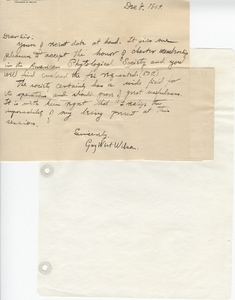 Dec 7, 1908.
Dear Sir:
Yours of recent date at hand. It gives me
pleasure to accept the honor of charter membership
in the American Phytological Society and you
will find enclosed the fee requested.
The society certainly has a wide field for
its operations and should prove of great usefulness.
It is with keen regret that I realize the
impossibility of my being present at
session.
Sincerely,
Guy West Wilson